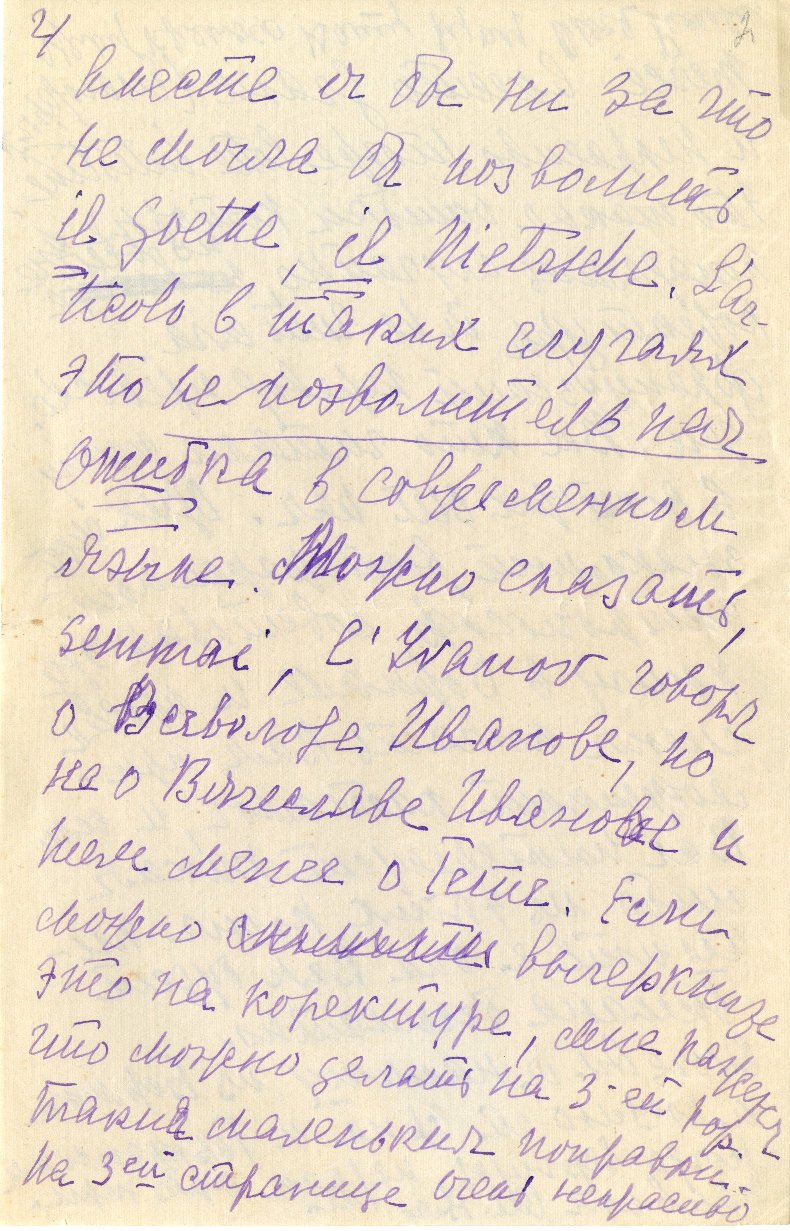 4
2
вместе я бы ни за что
не могла бы позволить
il Goethe, il Nietzsche. L'ar-
ticolo в таких случаях
это непозволительная
ошибка в современном
языке. Можно сказать,
semmai, l'Ivanov говоря
о Всеволоде Иванове, но
не о Вячеславе Иванове и
тем менее о Гете. Если
можно вычеркните
это на коректуре, мне кажется
что можно делать на 3-ей кор.
такия маленькия поправки.
На 3ей странице очень некрасиво